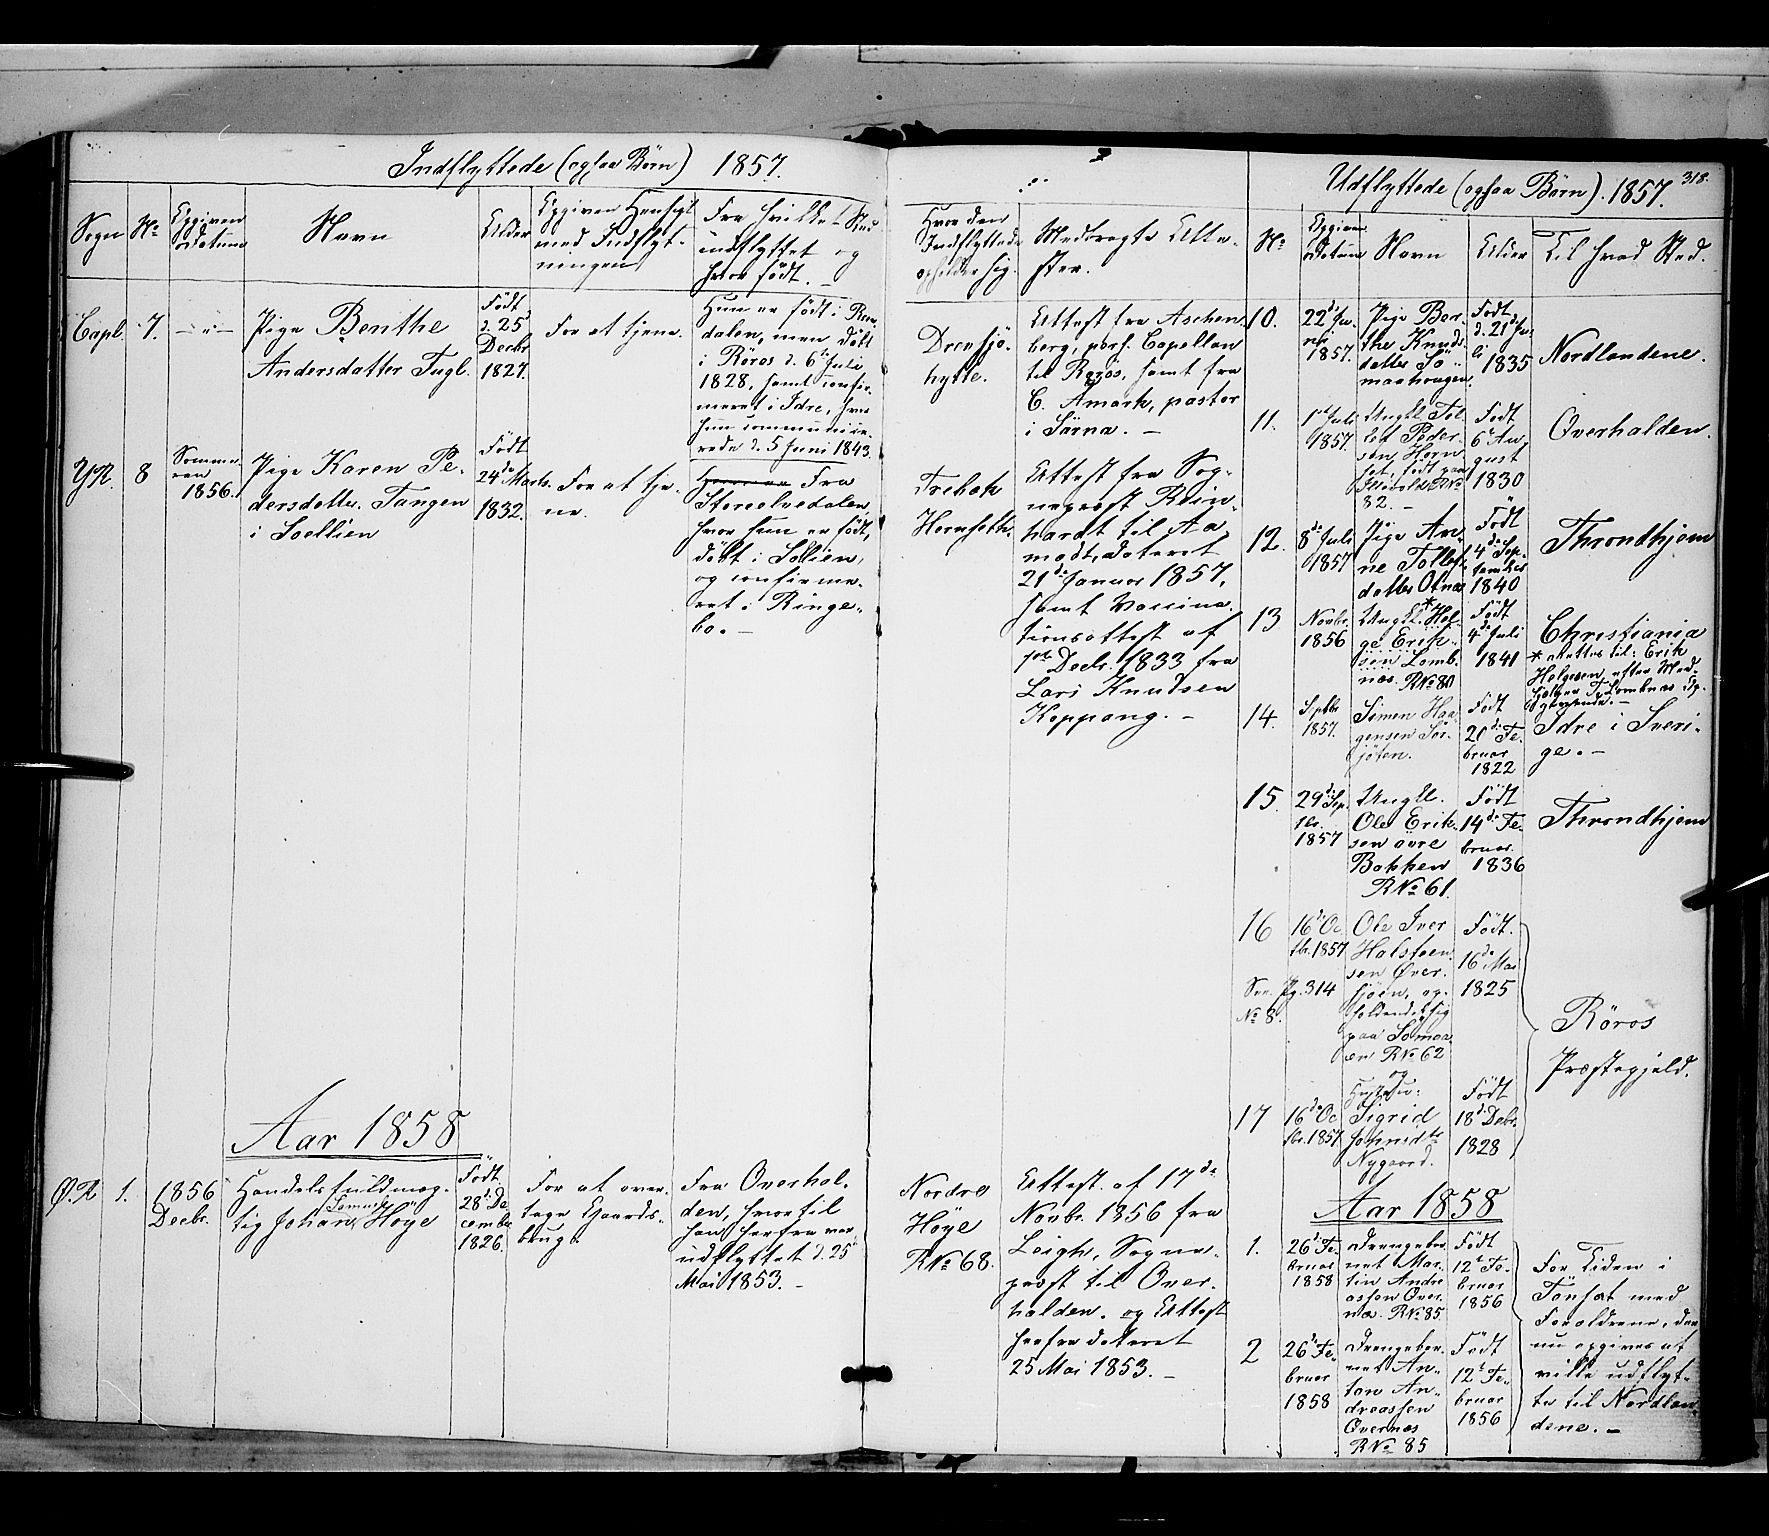 Indflyttede (ogsaa Børn) 1857.
Sogn
No
Opgiven
Datum
Navn
Alder
Opgiven Hensigt
med Indflyt-
ningen
Fra hvilket Sted
indflyttet og
hvor født.
Capl.
7.
-"-
Pige Benthe
Andersdatter Fugl.
Født
d. 25d
Decbr
1827.
For at tjene.
Hun er født i Ren-
dalen, men døbt
i Röros d. 6te Juli
1828, samt confir-
meret i Idre, hvor
hun communice-
rede d. 5 Juni 1843.
Y.R.
8
Somme-
ren
1856.
Pige Karen Pe-
dersdatter Tangen
i Soellien
Født
24de Marts
1832.
For at tje-
ne.
Fra
Storelvedalen,
hvor hun er født,
døbt i Solien,
og confirme-
ret i Ringe-
bo.-
Aar 1858
Ø.R.
1.
1856
Decbr.
Handelsfuldmæg-
tig Johan Høye
Født
28de De-
cembr.
1826.
For at over-
tage Gaards-
brug.
Fra Overhal-
den, hvortil
han herfra var
udflyttet d. 25
Mai 1853.-
Hvor den
Indflyttede
opholder sig.
Medbragte Atte-
ster.
Drevsjö-
hytte.
Attest fra Aschen-
berg, pers. Capellan
til Røros, samt fra
C. Åmark, pastor
i Särna.-
Trebak
Hornseth.
Attest fra Sog-
neprest Rein-
hardt til Aa-
modt, dateret
21de Januar 1857,
samt Vaccina-
tionsattest af
1ste Decbr. 1833 fra
Lars Knudsen
Koppang.-
Nordre
Höye
R No 68.
Attest af 17de
Novbr. 1856 fra
Leigh, Sogne-
prest til Over-
halden. og Attest
herfra dateret
25 Mai 1853.-
Udflyttede (ogsaa Børn). 1857.
318.
No
Opgiven
Datum
Navn
Alder
Til hvad Sted.
10.
22de Ju-
ni
1857.
Pige Ber-
the Knuds-
datter Sö-
maahaugen
Født
d. 21de Ju-
li
1835
Nordlandene.
11.
1ste Juli
1857
Ungkl. Tol-
lef Peder-
sen Horn-
set, født paa
R No
82.-
Født
6te Au-
gust
1830
Overhalden.
12.
8de Juli
1857
Pige An-
ne Tollefs-
datter Otnæs
Født
4de Sep-
tember
1840
Throndhjem
13
Novbr.
1856
Ungkl.* Hel-
ge Erik-
sen Lomb-
næs. R No 80
Født
4de Juli
1841
Christiania
* rettes til: Erik
Helgesen efter Med-
hjelper T. Lombnæs Op-
givende.-
14.
Sptbr
1857.
Simen Haa-
gensen Sör-
jöten.
Født
20de Fe-
bruar
1822
Idre i Sveri-
ge.-
15.
29de Sep-
tbr.
1857
Ungkl.
Ole Erik-
sen øvre
Bakken
R No 61.
Født
14de Fe-
bruar.
1836
Throndhjem
16
16de Oc-
tbr. 1857
See Pg. 314
No 8.
Ole Iver
Halsteen-
sen Øver-
sjøen, op-
holdende sig
paa Sömaa-
en R No 62
og
Født.
16de Mai
1825
Röros
Præstegjeld.
17
16de Oc-
tbr. 1857
Hustru:
Sigrid
Johnsdtr
Nygaard.
Født
18de Debr.
1828
Aar 1858
1.
26de Fe-
bruar
1858
Drengebar-
net Mar-
tin Andre-
assen Øver-
næs. R No 85.
Født
12te Fe-
bruar
1856
For Tiden i
Tönset med
Forældrene, der
nu opgives at
ville udflyt-
te til Nordlan-
dene.-
2
26de Fe-
bruar
1858
Drengebar-
net An-
ton An-
dreassen
Øvernæs
R No 85
Født
12te Fe-
bruar
1856